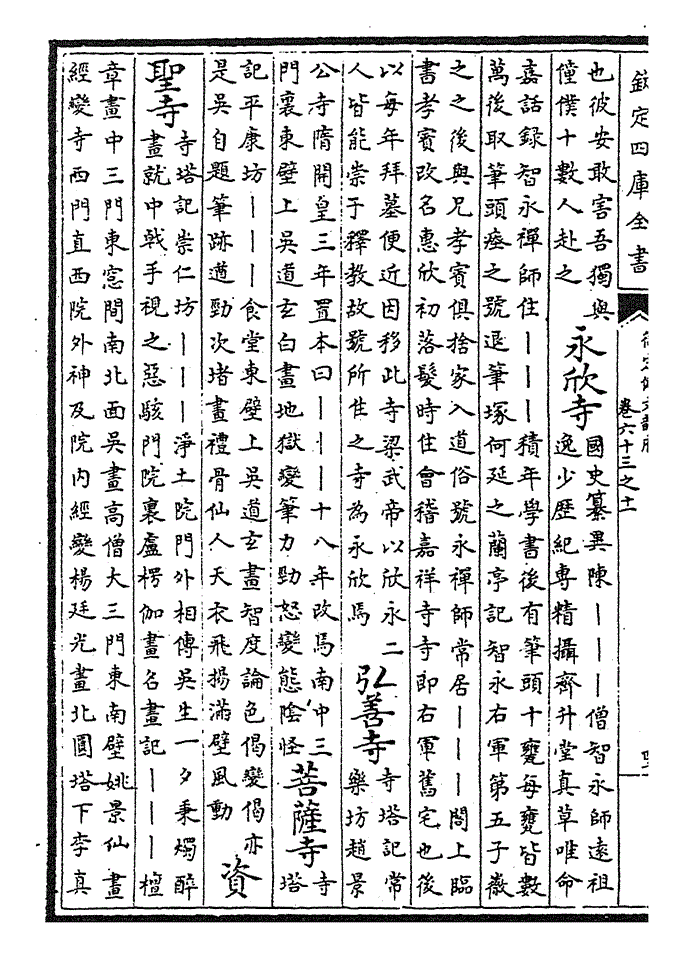 欽定四庫全書
御定佩文韻府
卷六十三之十一
也彼安敢害吾獨與
僮僕十數人赴之
永欣寺
國史纂異陳｜｜｜僧智永師遠祖
逸少歷紀專精攝齊升堂真草唯命
嘉話錄智永禪師住｜｜｜積年學書後有筆頭十甕每甕皆數
萬後取筆頭瘞之號退筆塚何延之蘭亭記智永右軍第五子徽
之之後與兄孝賓俱捨家入道俗號永禪師常居｜｜｜閣上臨
書孝賓改名惠欣初落髮時住會稽嘉祥寺寺即右軍舊宅也後
以每年拜墓便近因移此寺梁武帝以欣永二
人皆能崇于釋教故號所住之寺為永欣焉
弘善寺
寺塔記常
樂坊趙景
公寺隋開皇三年置本曰｜｜｜十八年改焉南中三
門裏東壁上吳道玄白畫地獄變筆力勁怒變態陰怪
菩薩寺
寺
塔
記平康坊｜｜｜食堂東壁上吳道玄畫智度論色偈變偈亦
是吳自題筆跡遒勁次堵畫禮骨仙人天衣飛揚滿壁風動
資
聖寺
寺塔記崇仁坊｜｜｜淨土院門外相傳吳生一夕秉燭醉
畫就中戟手視之惡駭門院裏盧楞伽畫名畫記｜｜｜檀
章畫中三門東窓間南北面吳畫高僧大三門東南壁姚景仙畫
經變寺西門直西院外神及院內經變楊廷光畫北圓塔下李真